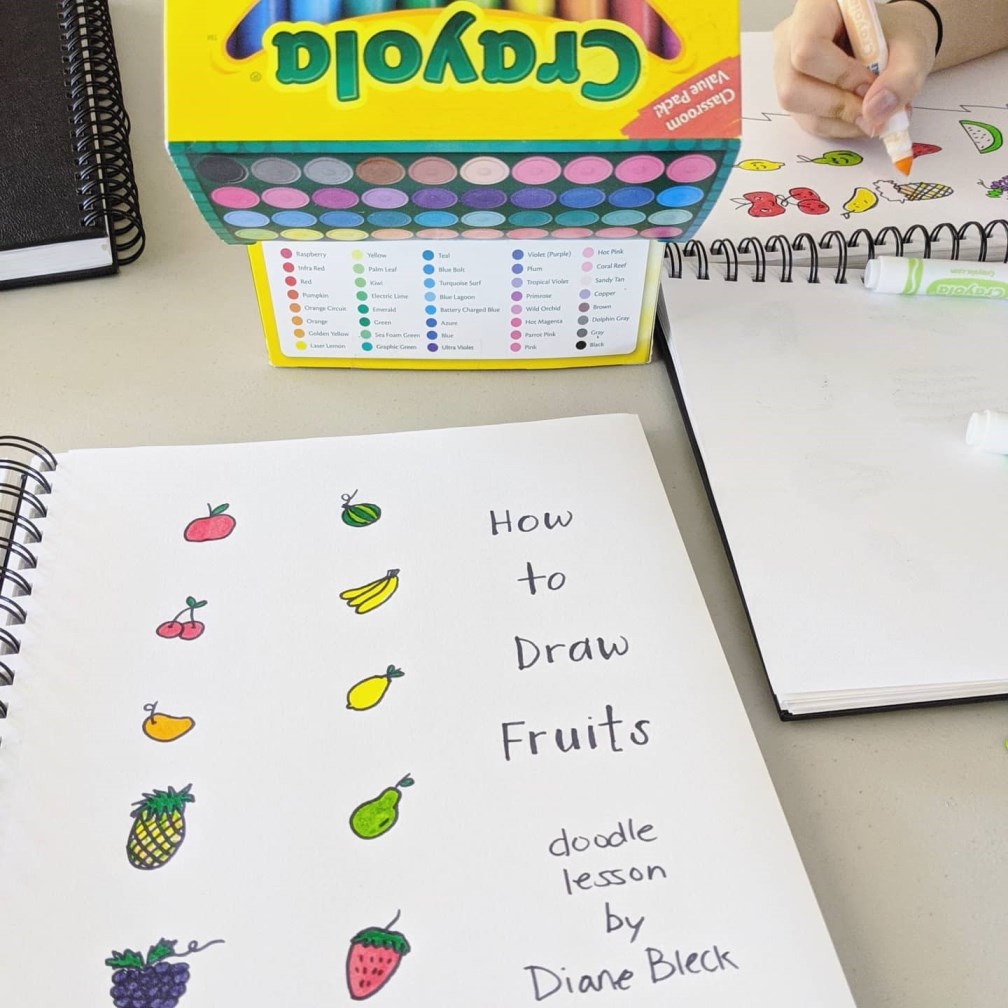 Crayola
Classroom
Value Pack!
Raspberry
Infra Red
Red
Pumpkin
Orange Circuit
Orange
Golden Yellow
Laser Lemon
Yellow
Palm Leaf
Kiwi
Electric Lime
Emerald
Green
Sea Foam Green
Graphic Green
Teal
Blue Bolt
Turquoise Surf
Blue Lagoon
Battery Charged Blue
Azure
Blue
Ultra Violet
Violet (Purple)
Plum
Tropical Violet
Primrose
Wild Orchid
Hot Magenta
Parrot Pink
Pink
Hot Pink
Coral Reef
Sandy Tan
Copper
Brown
Dolphin Gray
Gray
Black
Crayola
How
to
Draw
Fruits
doodle
lesson
by
Diane Bleck